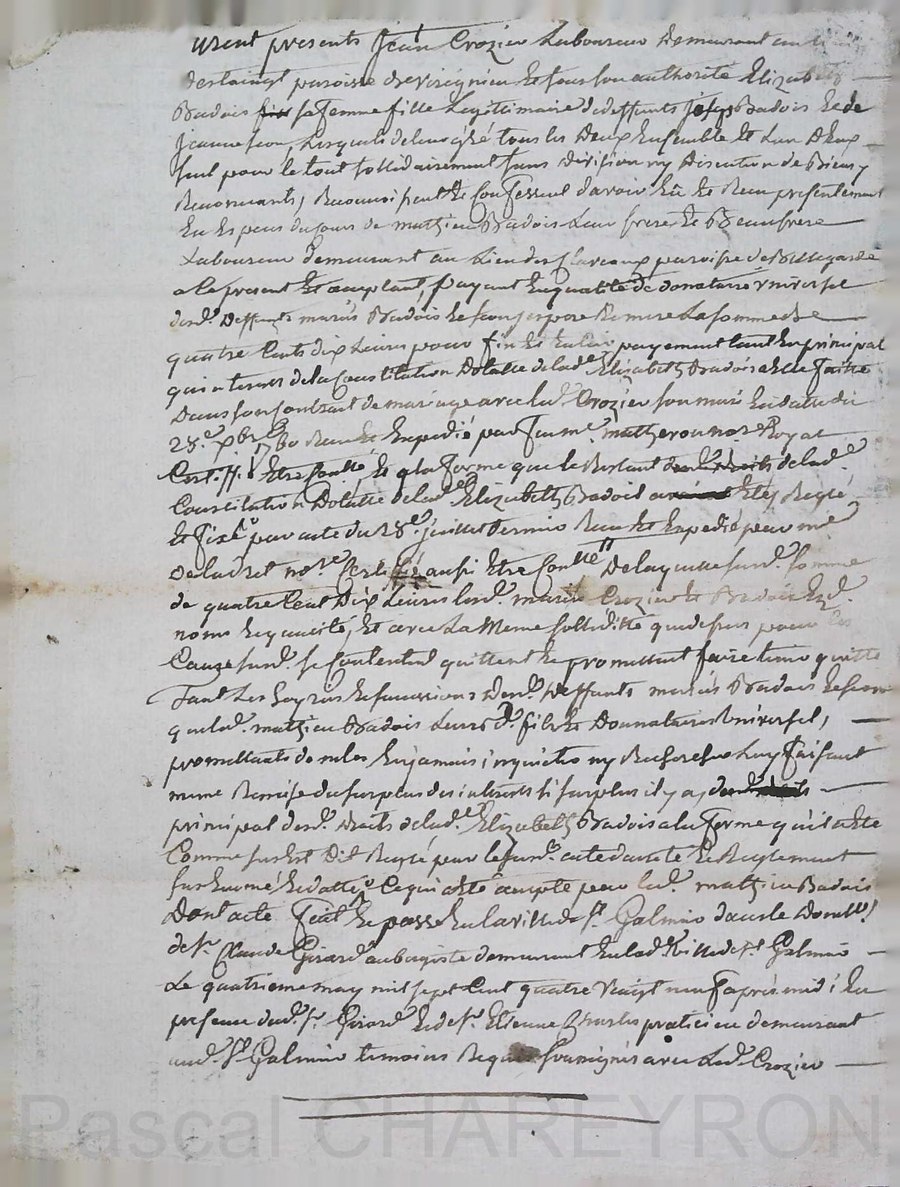 urent presents Jean Crozier Laboureur Demeurant au
paroisse de virignieu Et sous son authorité Elizabeth
Badois sa femme fille Legittimaire de deffunts Badois Et de
Jeanne Lesquels de leur gré tous les Deux Ensemble Et L'un D'Eux
seul pour le tout sollidairement sans Division ny Discution de Biens y
Renonceants, Reconnoissent Et Confessent d'avoir Eü Et Receu presentement
En Especes du cours de mathieu Badois Leur frere Et Beaufrere
Laboureur demeurant au Lieu des paroisse de Bellegarde
a Ce present Et acceptant, payant En qualité de donataire universel
desd. Deffunts mariés Badois Et ses pere Et mere La somme de
quatre Cents dix Livres pour fin Et Entier payement tant En principal
qu'interets de la Constitution Dotalle de lad.e Elizabeth Badois a Elle faitte
Dans son Contrant de mariage avec led. Crozier son mari En datte du
28.e xbre 1760 Receu Et Expedié par feu me. matheron nore. Royal
Cert.ff. Etre Conllé, Et a la forme que le Restant de lad.e
Constitution Dotalle de lad.e Elizabeth Badois a Eté Reglé
Et fixé par acte du 28.e juillet dernier Receu Et Expedié par me
Delad nore. Certiffié aussi Etre Conllé De laquelle susd. somme
de quatre Cent Dix Livres lesd. mariés Crozier Et Badois Esd.
noms Et qualité, Et avec La Meme solliditté que dessus pour Les
Causes susd. se Contentent quittent Et promettent faire tenir quitte
Tant Les hoyries Et successions desd. Deffunts mariés Badois Et
que led. mathieu Badois Leurs d. fils Et Donnataire Universel,
promettants de ne les En jamais inquietter ny Rechercher Luy faisant
meme Remise du surplus des interets si surplus il y a,
principal desd. Droits de lad.e Elizabeth Badois a la forme qu'il a Eté
Comme sus Est Dit Reglé par le susd. acte de Et Reglement
sus Enoncé Et datté Ce qui a Eté accepté par led. mathieu Badois
Dont acte fait Et passé En la ville de St. Galmier dans le Domlle.
de sr. Claude Girard aubergiste demeurant En lad. ville de St. Galmier
Le quatrieme may mil sept Cent quatre vingt neuf apres midi; En
presence dud. sr. Girard Et de sr. Etienne praticien demeurant
aud. St. Galmier temoins Requis soussignés avec Led. Crozier
Pascal CHAREYRON